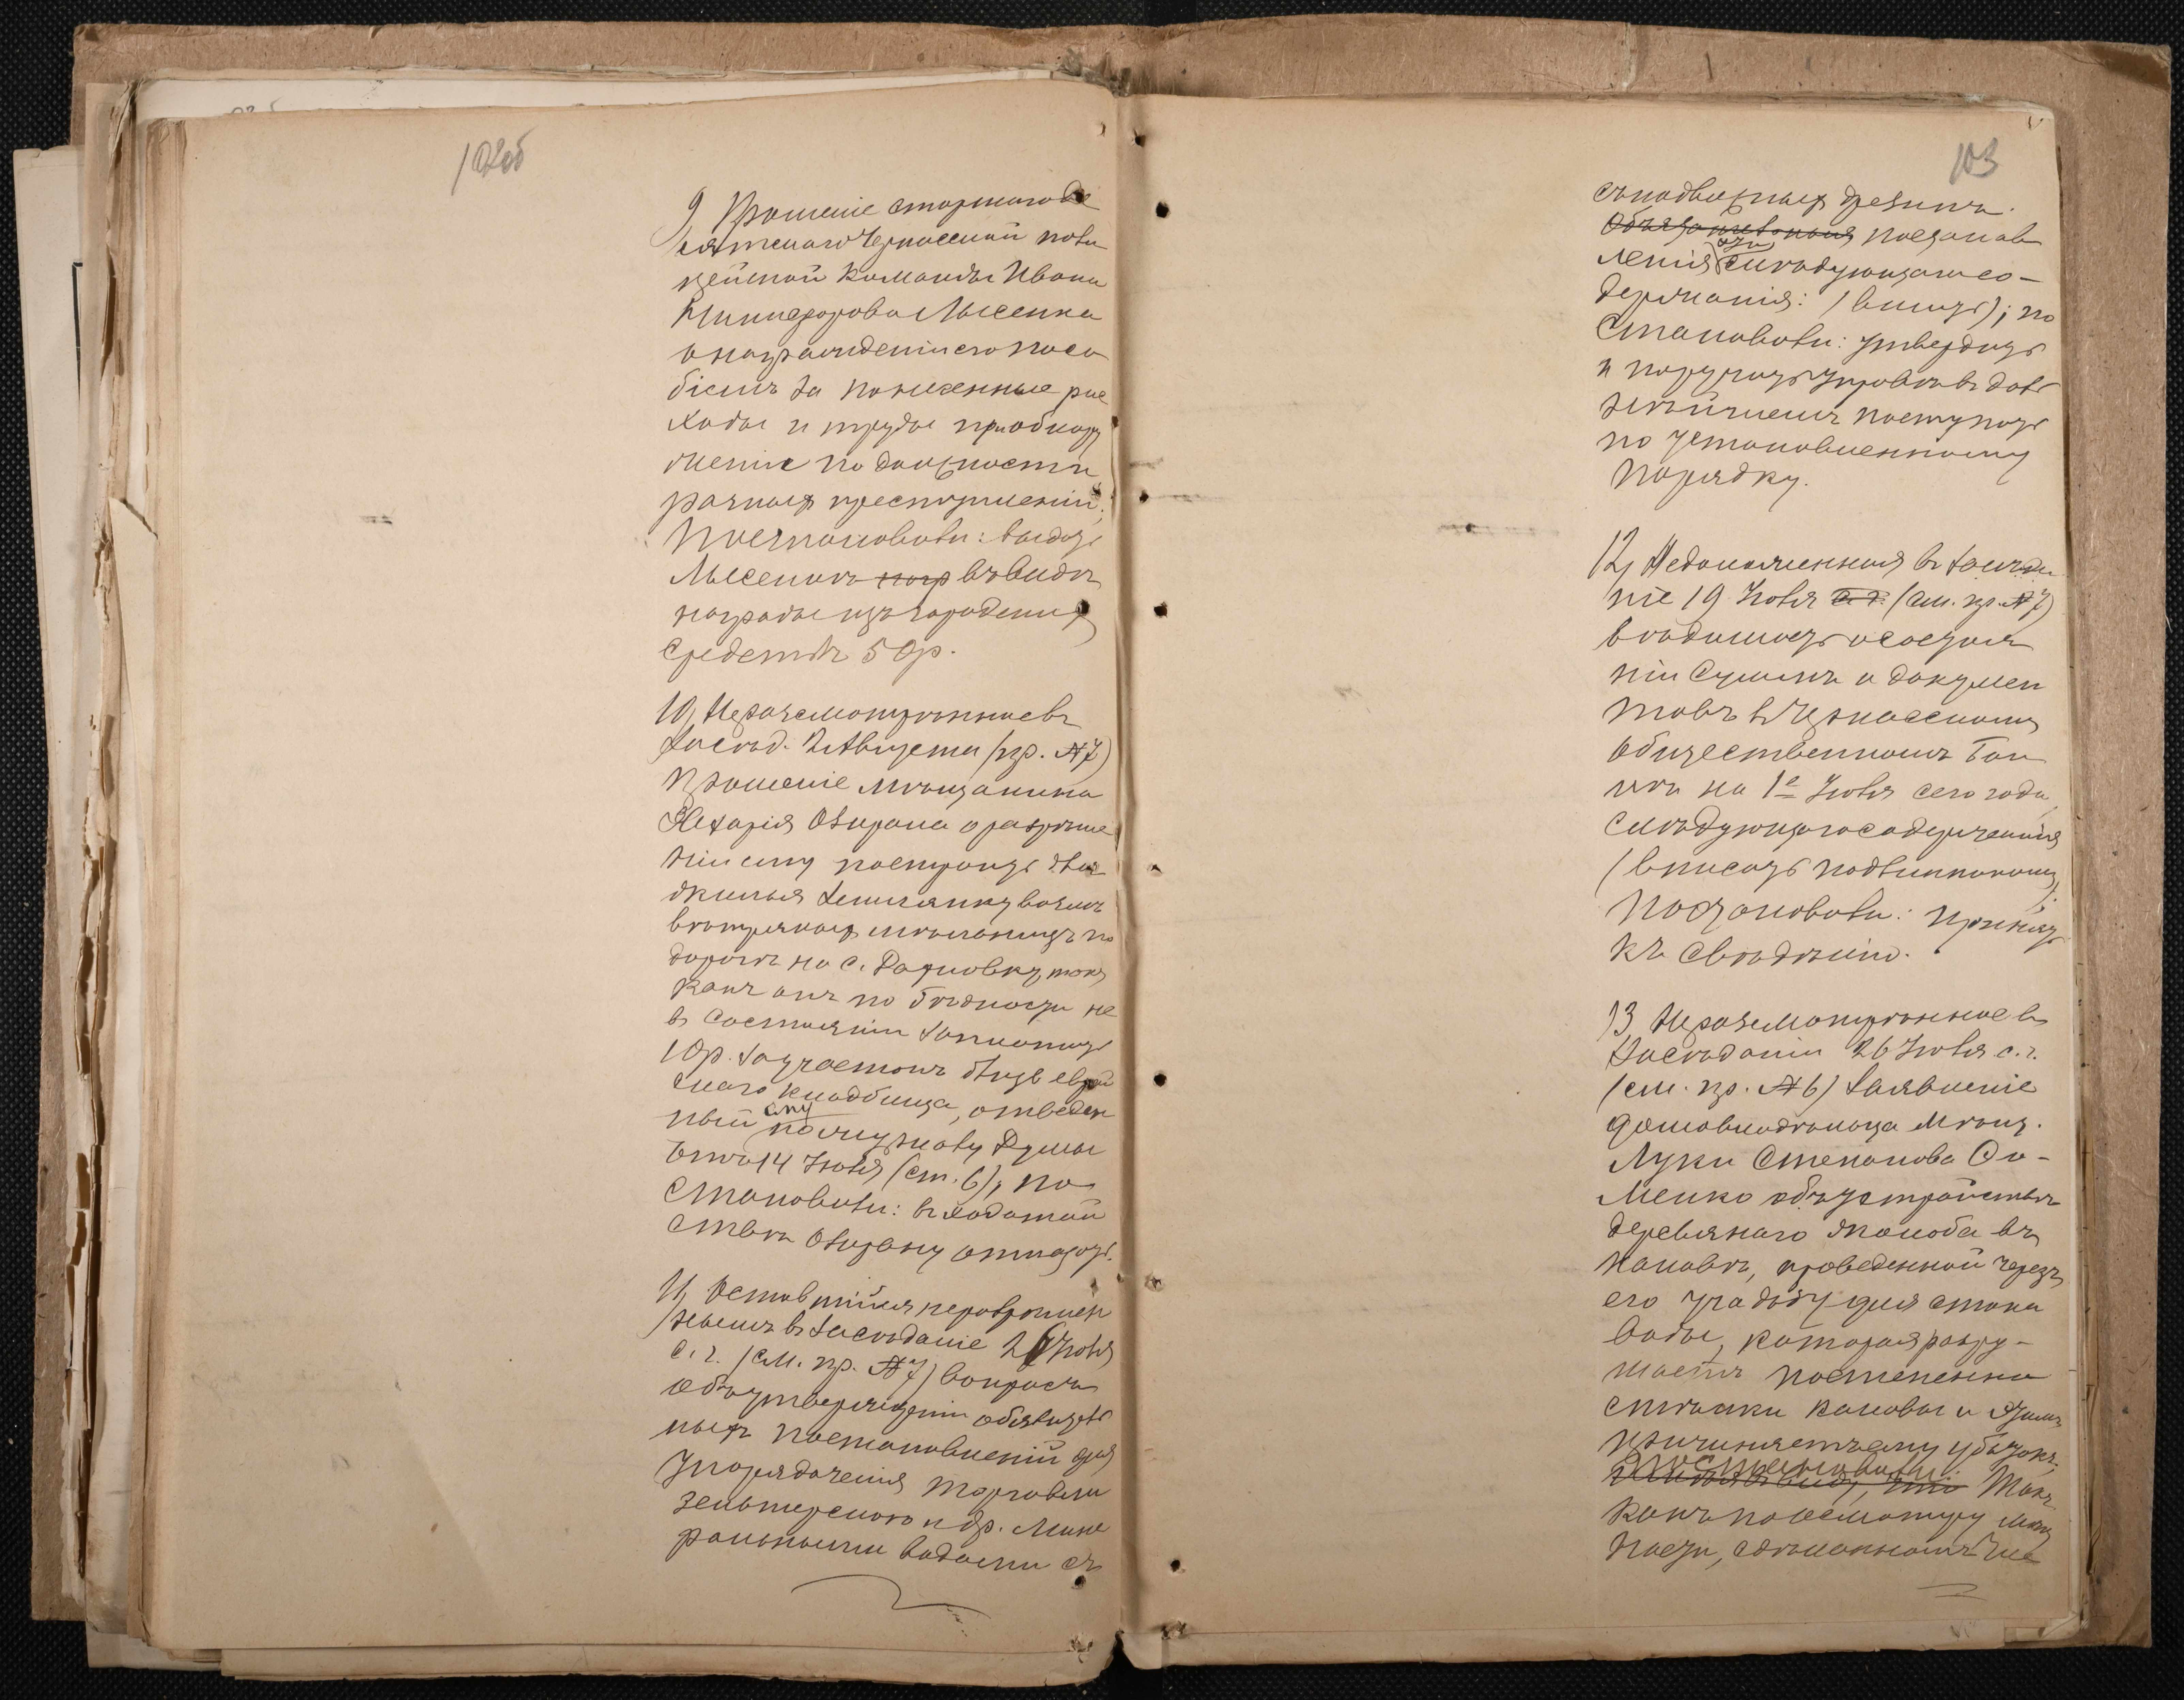 102об
9, Прошеніе старшаго де
сятскаго Черкасской поли
цейской команды Ивана
Никифорова Лысенка
о награжденіи его посо
біемъ за понесенные рас
ходы и труды при обнару
женіи по должности
разныхъ преступленій;
Постановили: выдать
Лысенкѣ въ видѣ
награды изъ городскихъ
средствъ 50р.
10, Неразсмотрѣнное въ
засѣд. 2 Августа (пр. №7)
прошеніе мѣщанина
Захарія Озирана о разрѣше
ніи ему построить для
жилья землянку возлѣ
вѣтряныхъ мѣльницъ по
дорогѣ на с. Дахновку, такъ
какъ онъ по бѣдности не
въ состояніи заплатить
10р. за участокъ близь еврей
скаго кладбища, отведен
ный ему по журналу Думы
14 Іюля (ст. 6); по
становили: въ ходатай
ствѣ Озирану отказать.
11, Оставшійся неразрѣшен
нымъ въ засѣданіе 26 Іюля
с. г. (см. пр. №7) вопросъ
объ утвержденіи обязатель
ныхъ постановленій для
упорядоченія торговли
зельтерскою и др. мине
ральными водами съ
103
съ подвижныхъ
Обязательныя постанов
ленія слѣдующаго со-
держанія: (внизъ); по
становили: утвердить
и поручить Управѣ въ даль
нѣйшемъ поступать
по установленному
порядку.
12, Недоложенная въ засѣда
ніе 19 Іюля с. г. (см. пр. №7)
вѣдомость о состоя
ніи суммъ и докумен
товъ въ Черкасскомъ
Общественномъ Бан
кѣ на 1е Іюля сего года,
слѣдующаго содержанія
(вписать подлинникомъ);
Постановили: принять
къ свѣдѣнію.
13, Неразсмотрѣнное въ
засѣданіи 26 Іюля с. г.
(см. пр. №6) заявленіе
домовладѣльца мѣщ.
Луки Степанова Со-
менко объ устройствѣ
деревянаго жолоба въ
канавѣ, проведенной черезъ
его усадьбу для стока
воды, которая разру-
шаетъ постепенно
стѣнки канавы и этимъ
причиняетъ ему убытокъ;
Постановили: Такъ
какъ по осмотру мѣст
ности, сдѣланномъ